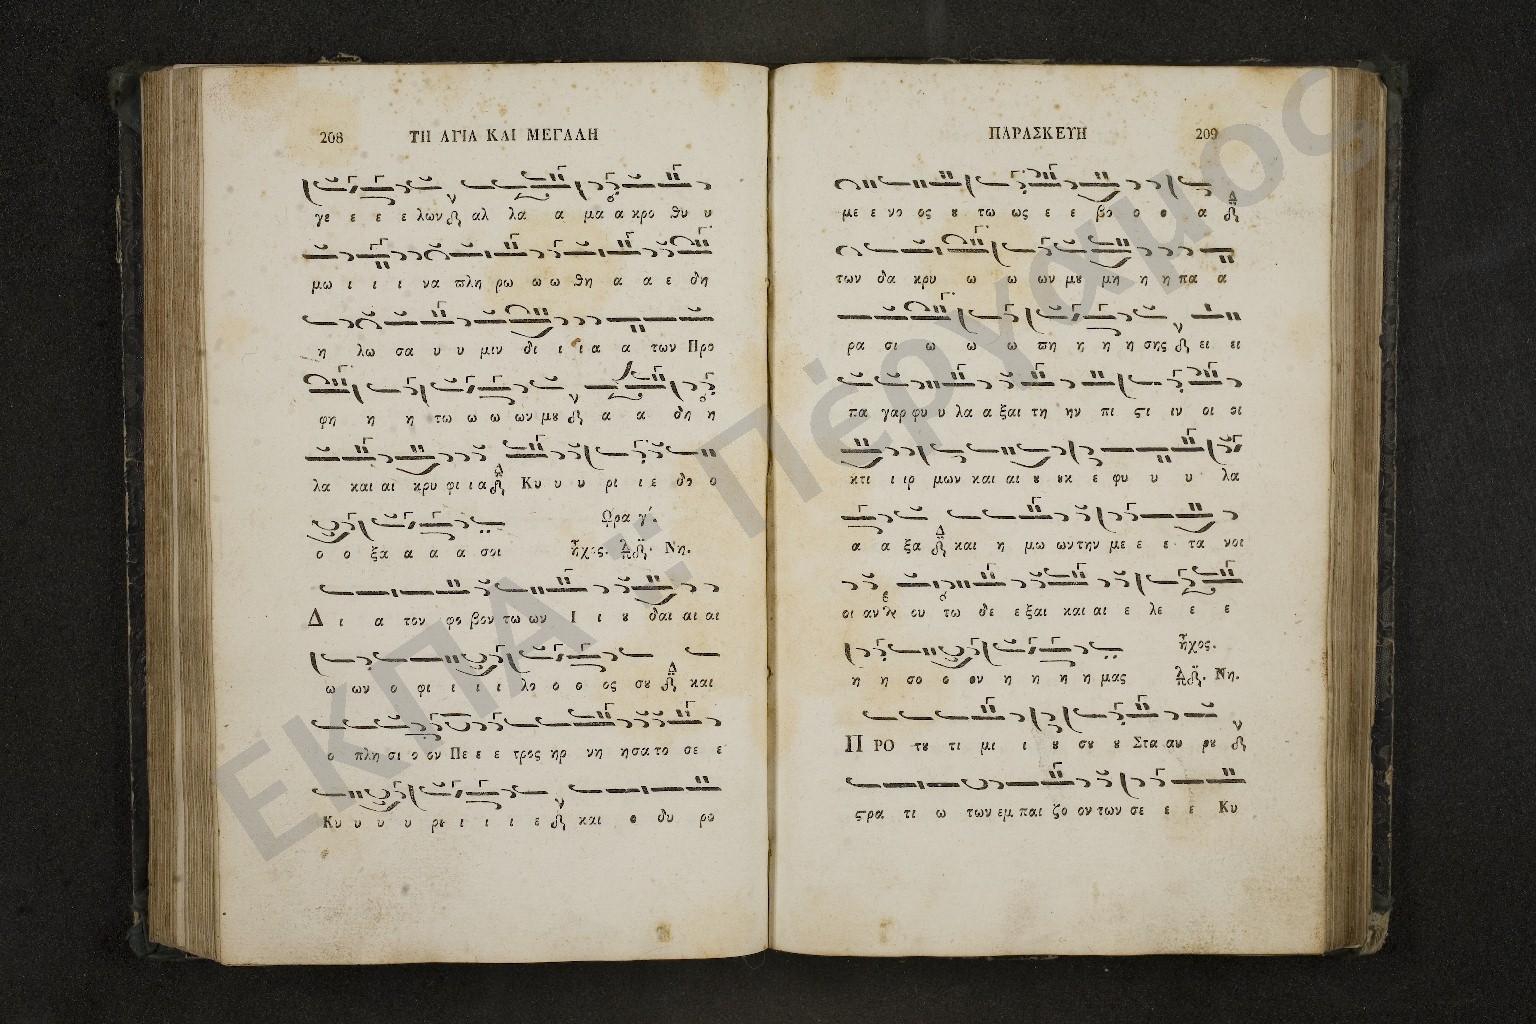 208 ΤΗ ΑΓΙΑ ΚΑΙ ΜΕΓΑΛΗ
γε ε ε ε λων αλ λα α μα α κρο θυ υ
μω ι ι ι να πλη ρω ω ω θη α α ε δη
η λω σα υ υ μιν δι ι ι α α των Προ
φη η η τω ω ω ων μου α α δη η
λα και αι κρυ φι ι α Κυ υ υ ρι ι ε δο ο
Ωρα γ΄.
ο ο ξα α α α σοι ἦχος. λπ δ. Νη.
Δ ι α τον φο βον τω ων Ι ι ου δαι αι αι
ω ων ο φι ι ι ι λο ο ο ος σου Δ και
ο πλη σι ο ον Πε ε ε τρος ηρ νη η σα το σε ε
Κυ υ υ υ ρι ι ι ι ε και ο δυ ρο
ΠΑΡΑΣΚΕΥΗ 209
με ε νο ος ου τω ως ε ε βο ο ο α Δ
των δα κρυ ω ω ων μου μη η η πα α
ρα σι ω ω ω πη η η η σης ει ει
πα γαρ φυ υ λα α ξαι τη ην πι ςι ιν οι οι
κτι ι ιρ μων και αι ου ουκ ε φυ υ υ λα
α α ξα Δ και η μω ων την με ε ε τα νοι
οι αν ου τω δε ε ξαι και αι ε λε ε ε
ἦχος.
η η σο ο ον η η η η μας λπ δ. Νη.
ΠΡΟ του τι μι ι ου σου ου Στα αυ ρου
ςρα τι ω των εμ παι ζο ον των σε ε ε Κυ
ΕΚΠΑ :: Πέργαμος